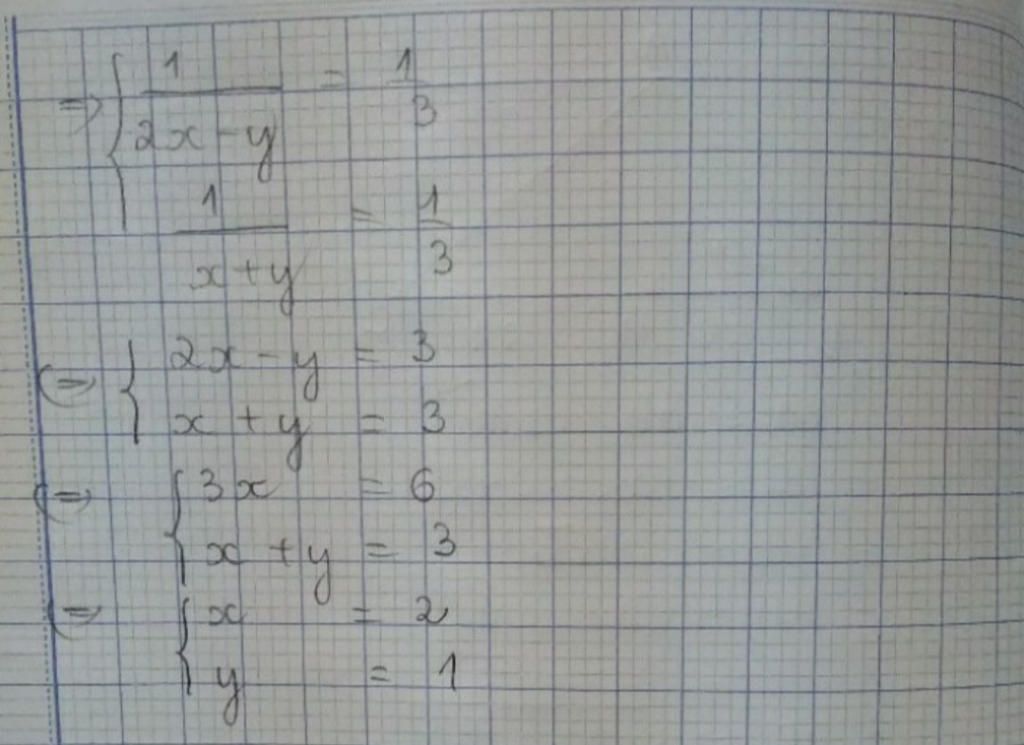 => { 1/(2x - y) = 1/3
1/(x + y) = 1/3
<=> { 2x - y = 3
x + y = 3
<=> { 3x = 6
x + y = 3
<=> { x = 2
y = 1